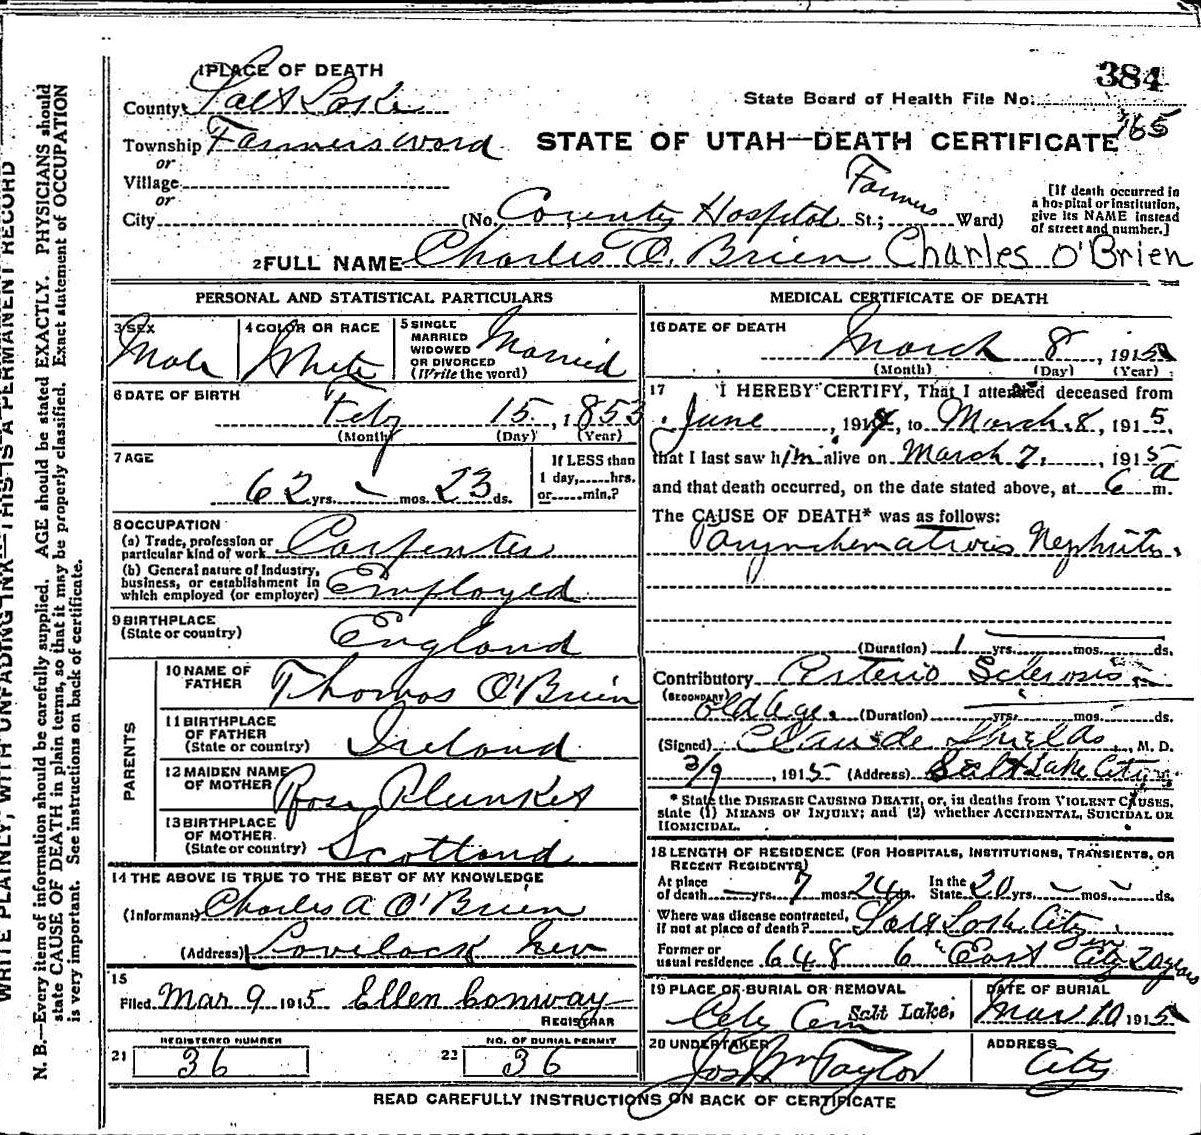 384
State Board of Health File No.
165
1 PLACE OF DEATH
County Salt Lake
STATE OF UTAH—DEATH CERTIFICATE
Township Farmers Word
or
Village
or
City (No. County Hospital St.; Farmers Ward)
[If death occurred in
a hospital or institution,
give its NAME instead
of street and number.]
2 FULL NAME Charles O. Brien Charles O'Brien
PERSONAL AND STATISTICAL PARTICULARS
3 SEX
Male
4 COLOR OR RACE
White
5 SINGLE
MARRIED
WIDOWED
OR DIVORCED
(Write the word)
Married
6 DATE OF BIRTH
Feb 15, 1853
(Month) (Day) (Year)
7 AGE
62 yrs. – mos. 23 ds.
If LESS than
1 day, hrs.
or min.?
8 OCCUPATION
(a) Trade, profession or
particular kind of work Carpenter
(b) General nature of Industry,
business, or establishment in
which employed (or employer) Employed
9 BIRTHPLACE
(State or country) England
PARENTS
10 NAME OF
FATHER Thomas O'Brien
11 BIRTHPLACE
OF FATHER
(State or country) Ireland
12 MAIDEN NAME
OF MOTHER Rose Plunket
13 BIRTHPLACE
OF MOTHER
(State or country) Scotland
14 THE ABOVE IS TRUE TO THE BEST OF MY KNOWLEDGE
(Informant) Charles A O'Brien
(Address) Lovelock Nev
15
Filed Mar 9 1915 Ellen Conway
REGISTRAR
REGISTERED NUMBER
21 36
NO. OF BURIAL PERMIT
22 36
MEDICAL CERTIFICATE OF DEATH
16 DATE OF DEATH
March 8, 1915
(Month) (Day) (Year)
17 I HEREBY CERTIFY, That I attended deceased from
June, 1914, to March 8, 1915,
that I last saw him alive on March 7, 1915
and that death occurred, on the date stated above, at 6 a m.
The CAUSE OF DEATH* was as follows:
Nephritis.
(Duration) 1 yrs. mos. ds.
Contributory Arterio Sclerosis
(SECONDARY)
old age. (Duration) yrs. mos. ds.
(Signed) Claude Shields, M. D.
3/9, 1915 (Address) Salt Lake City
* State the DISEASE CAUSING DEATH, or, in deaths from VIOLENT CAUSES,
state (1) MEANS OF INJURY; and (2) whether ACCIDENTAL, SUICIDAL OR
HOMICIDAL.
18 LENGTH OF RESIDENCE (FOR HOSPITALS, INSTITUTIONS, TRANSIENTS, OR
RECENT RESIDENTS)
At place
of death – yrs. 7 mos. 24 ds. In the
State 20 yrs. – mos. – ds.
Where was disease contracted,
if not at place of death? Salt Lake City
Former or
usual residence 648 6" East City 20 years
19 PLACE OF BURIAL OR REMOVAL
City Cem Salt Lake,
DATE OF BURIAL
Mar 10 1915
20 UNDERTAKER
Jos Wm Taylor
ADDRESS
City
READ CAREFULLY INSTRUCTIONS ON BACK OF CERTIFICATE
WRITE PLAINLY, WITH UNFADING INK—THIS IS A PERMANENT RECORD
N. B.—Every item of information should be carefully supplied. AGE should be stated EXACTLY. PHYSICIANS should
state CAUSE OF DEATH in plain terms, so that it may be properly classified. Exact statement of OCCUPATION
is very important. See instructions on back of certificate.